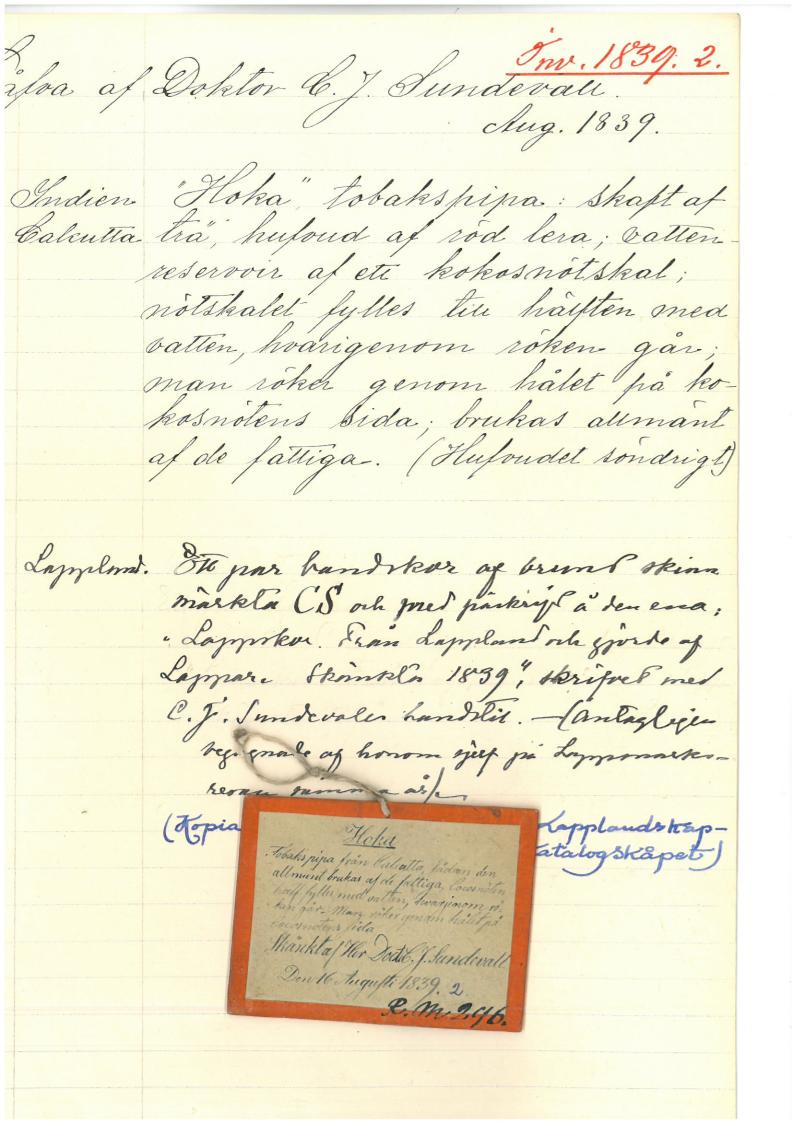 Inv. 1839. 2.
Gåfva af Doktor C. J. Sundevall.
Aug. 1839.
Indien "Hoka", tobakspipa: skaft af
Calcutta trä, hufvud af röd lera; vatten-
reservoir af ett kokosnötskal;
nötskalet fylles till hälften med
vatten, hvarigenom röken går;
man röker genom hålet på ko-
kosnötens sida; brukas allmänt
af de fattiga. (Hufvudet söndrigt)
Lappland. Ett par handskor af brunt skinn
märkta CS och med påskrift å den ena:
"Lappskor. Från Lappland och gjorde af
Lappar. Skänkta 1839", skrifvet med
C. J. Sundevalls handstil. — (Antagligen
begagnade af honom sjelf på Lappmarks-
resan samma år/.
(Kopia Lapplandskap-
katalogskåpet)
Hoka
Tobakspipa från Calcutta, sådan den
allmänt brukas af de fattiga. Cocosnöten
half fylles med vatten, hvarigenom rö-
ken går. Man röker genom hålet på
cocosnötens sida
Skänkt af Herr Doct. C. J. Sundevall
Den 16 Augusti 1839. 2.
R. M. 296.